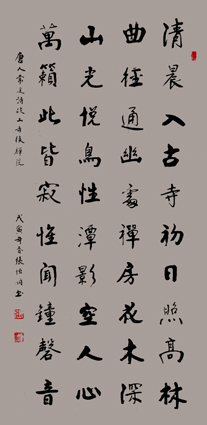 清晨入古寺初日照高林
曲徑通幽處禪房花木深
山光悦鳥性潭影空人心
萬籟此皆寂惟聞鐘磬音
唐人常建詩破山寺後禪院